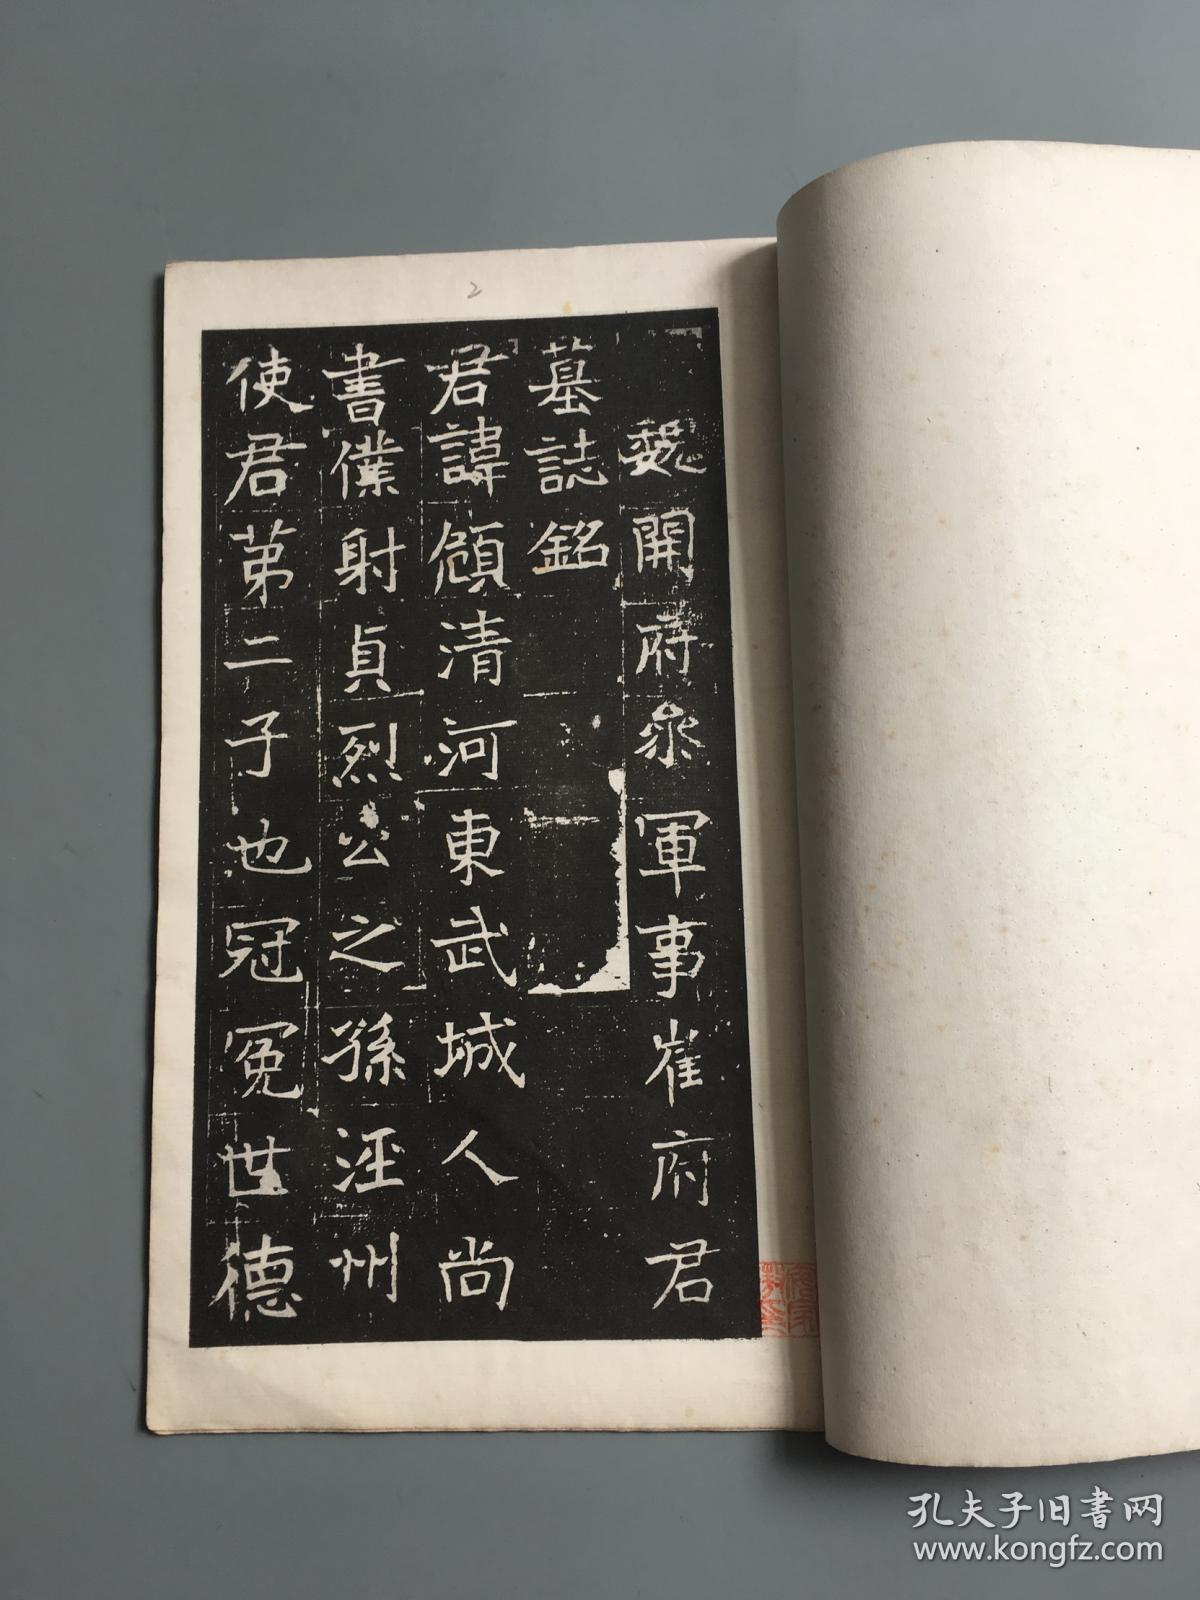 2
魏開府叅軍事崔府君
墓誌銘
君諱頠清河東武城人尚
書僕射貞烈公之孫涇州
使君苐二子也冠冕世德
孔夫子旧书网
www.kongfz.com